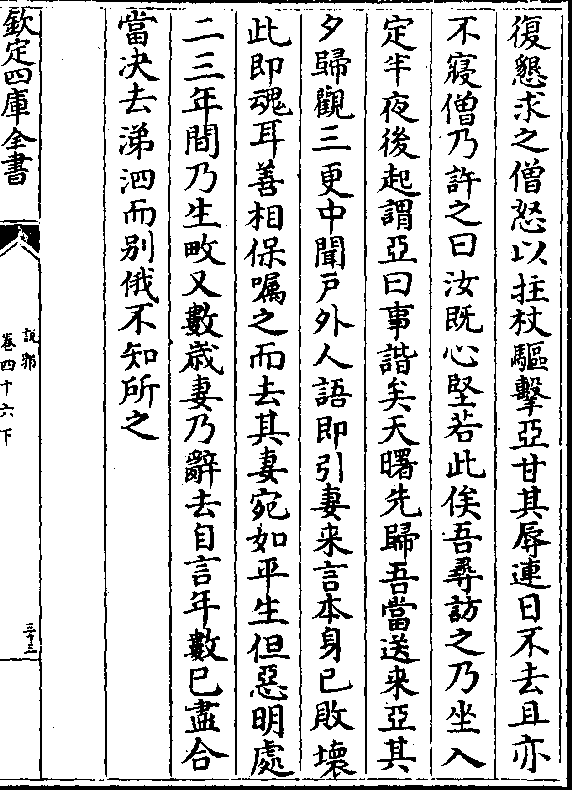 復懇求之僧怒以拄杖驅擊亞甘其辱連日不去且亦
不寢僧乃許之曰汝既心堅若此俟吾尋訪之乃坐入
定半夜後起謂亞曰事諧矣天曙先歸吾當送来亞其
夕歸觀三更中聞戸外人語即引妻来言本身已敗壞
此即魂耳善相保囑之而去其妻宛如平生但惡明處
二三年間乃生畋又數歳妻乃辭去自言年數已盡合
當决去涕泗而别俄不知所之
欽定四庫全書
說郛
卷四十六下
三十三